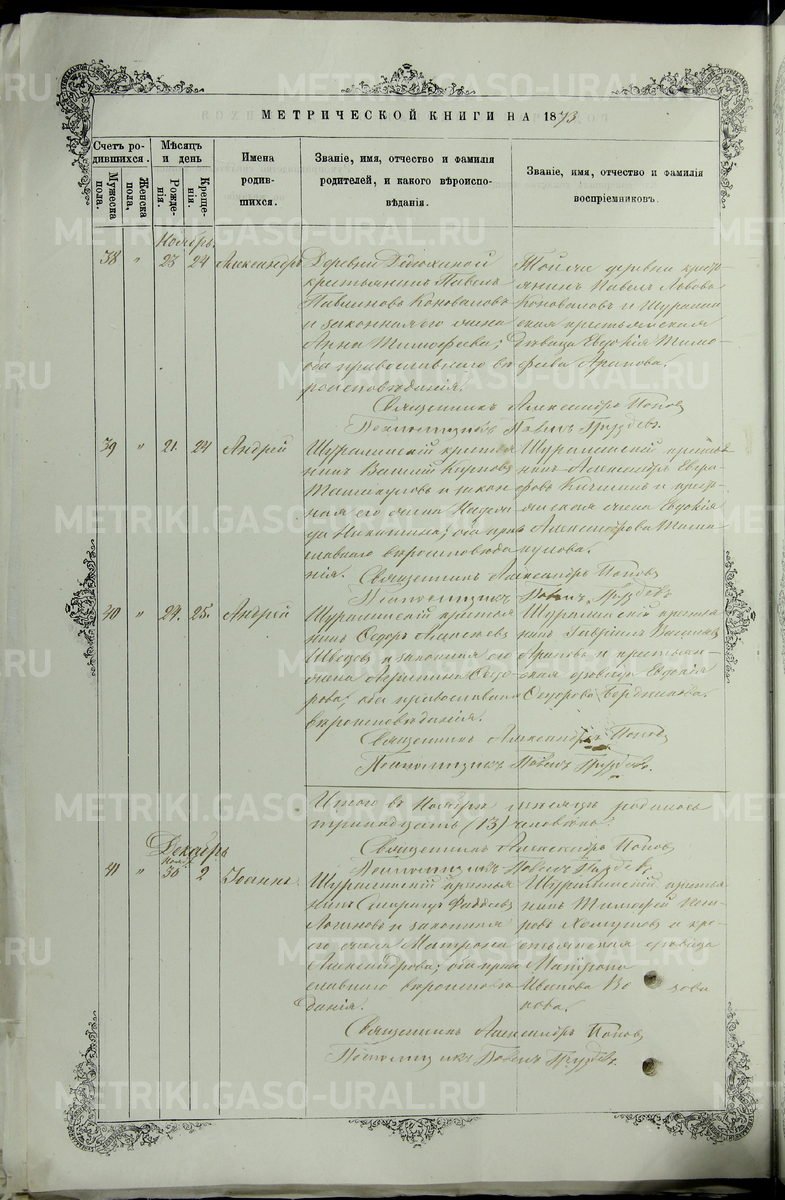 МЕТРИЧЕСКОЙ КНИГИ НА 1873
Счетъ родившихся.
Мужеска пола.
Женска пола.
Мѣсяцъ и день
Рожденія.
Крещенія.
Имена родившихся.
Званіе, имя, отчество и фамилія родителей, и какого вѣроисповѣданія.
Званіе, имя, отчество и фамилія воспріемниковъ.
Ноябрь.
38 " 23 24 Александръ
Деревни
крестьянинъ Павелъ
Павлиновъ Коноваловъ
и законная его жена
Анна Тимофеева; оба православнаго вѣроисповѣданія.
Той же деревни крестьянинъ Павелъ Львовъ
Коноваловъ и Шуралинская крестьянская
дѣвица Евдокія Тимофеева Арапова.
Священникъ Александръ Поповъ
Псаломщикъ Павелъ Груздевъ.
39 " 21. 24 Андрей
Шуралинскій крестьянинъ Василій Карповъ
и законная его жена Надежда Никитина; оба православнаго вѣроисповѣданія.
Шуралинскій крестьянинъ Александръ
и крестьянская жена Евдокія
Александрова
Священникъ Александръ Поповъ
Псаломщикъ Павелъ Груздевъ
40 " 24. 25. Андрей
Шуралинскій крестьянинъ Ѳедоръ Алексѣевъ
Шведовъ и законная его
жена
оба православнаго
вѣроисповѣданія.
Шуралинскій крестьянинъ Гавріилъ Васильевъ
Араповъ и крестьянская дѣвица Евдокія
Ѳедорова Бердникова.
Священникъ Александръ Поповъ
Псаломщикъ Павелъ Груздевъ.
Итого въ Ноябрѣ мѣсяцѣ родилось
тринадцать (13) человѣкъ.
Священникъ Александръ Поповъ
Псаломщикъ Павелъ Груздевъ.
Декабрь
41 " Нояб. 30 2 Іоаннъ.
Шуралинскій крестьянинъ Ѳаддеевъ
Логиновъ и законная
его жена Матрона
Александрова; оба православнаго вѣроисповѣданія.
Шуралинскій крестьянинъ Тимофей Петровъ Хомутовъ и крестьянская дѣвица
Матрона
Иванова
Священникъ Александръ Поповъ
Псаломщикъ Павелъ Груздевъ.
METRIKI.GASO-URAL.RU